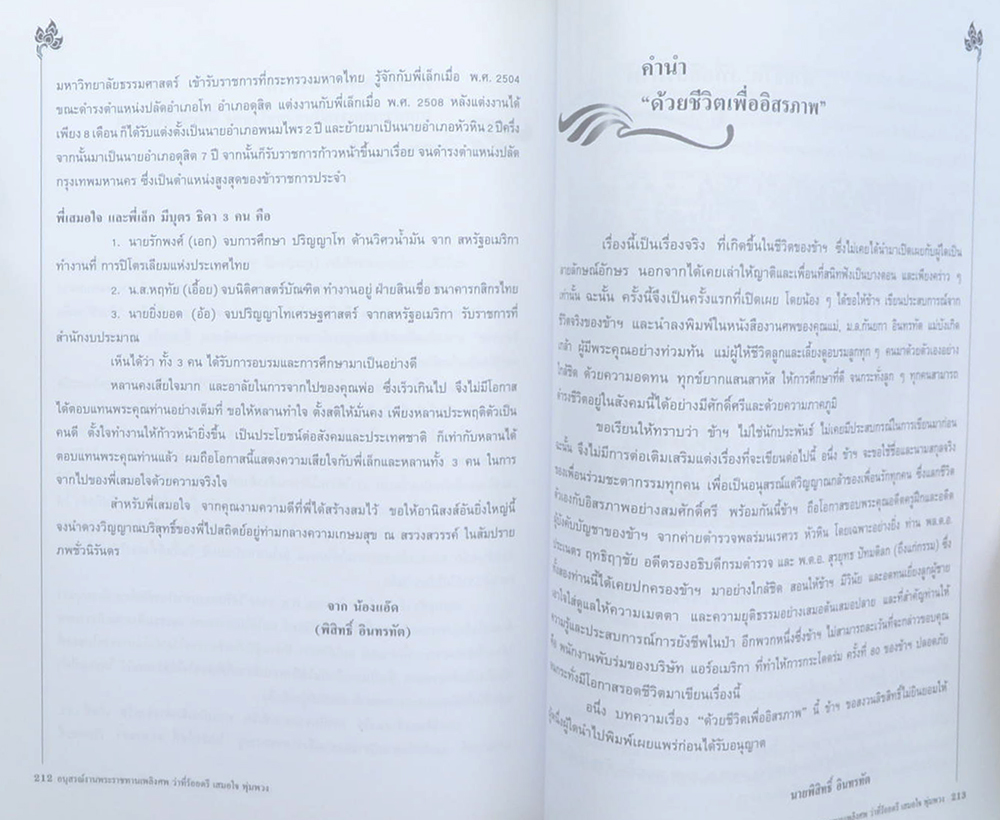 มหาวิทยาลัยธรรมศาสตร์ เข้ารับราชการที่กระทรวงมหาดไทย รู้จักกับพี่เล็กเมื่อ พ.ศ. 2504
ขณะดำรงตำแหน่งปลัดอำเภอโท อำเภอดุสิต แต่งงานกับพี่เล็กเมื่อ พ.ศ. 2508 หลังแต่งงานได้
เพียง 8 เดือน ก็ได้รับแต่งตั้งเป็นนายอำเภอพนมไพร 2 ปี และย้ายมาเป็นนายอำเภอหัวหิน 2 ปีครึ่ง
จากนั้นมาเป็นนายอำเภอดุสิต 7 ปี จากนั้นก็รับราชการก้าวหน้าขึ้นมาเรื่อย จนดำรงตำแหน่งปลัด
กรุงเทพมหานคร ซึ่งเป็นตำแหน่งสูงสุดของข้าราชการประจำ
พี่เสมอใจ และพี่เล็ก มีบุตร ธิดา 3 คน คือ
1. นายรักพงศ์ (เอก) จบการศึกษา ปริญญาโท ด้านวิศวน้ำมัน จาก สหรัฐอเมริกา
ทำงานที่ การปิโตรเลียมแห่งประเทศไทย
2. น.ส.หฤทัย (เอื้อย) จบนิติศาสตร์บัณฑิต ทำงานอยู่ ฝ่ายสินเชื่อ ธนาคารกสิกรไทย
3. นายยิ่งยอด (อ้อ) จบปริญญาโทเศรษฐศาสตร์ จากสหรัฐอเมริกา รับราชการที่
สำนักงบประมาณ
เห็นได้ว่า ทั้ง 3 คน ได้รับการอบรมและการศึกษามาเป็นอย่างดี
หลานคงเสียใจมาก และอาลัยในการจากไปของคุณพ่อ ซึ่งเร็วเกินไป จึงไม่มีโอกาส
ได้ตอบแทนพระคุณท่านอย่างเต็มที่ ขอให้หลานทำใจ ตั้งสติให้มั่นคง เพียงหลานประพฤติตัวเป็น
คนดี ตั้งใจทำงานให้ก้าวหน้ายิ่งขึ้น เป็นประโยชน์ต่อสังคมและประเทศชาติ ก็เท่ากับหลานได้
ตอบแทนพระคุณท่านแล้ว ผมถือโอกาสนี้แสดงความเสียใจกับพี่เล็กและหลานทั้ง 3 คน ในการ
จากไปของพี่เสมอใจด้วยความจริงใจ
สำหรับพี่เสมอใจ จากคุณงามความดีที่พี่ได้สร้างสมไว้ ขอให้อานิสงส์อันยิ่งใหญ่นี้
จงนำดวงวิญญาณบริสุทธิ์ของพี่ไปสถิตย์อยู่ท่ามกลางความเกษมสุข ณ สรวงสวรรค์ ในสัมปราย
ภพชั่วนิรันดร
จาก น้องแอ๊ด
(พิสิทธิ์ อินทรทัต)
212 อนุสรณ์งานพระราชทานเพลิงศพ ว่าที่ร้อยตรี เสมอใจ พุ่มพวง
คำนำ
“ด้วยชีวิตเพื่ออิสรภาพ”
เรื่องนี้เป็นเรื่องจริง ที่เกิดขึ้นในชีวิตของข้าฯ ซึ่งไม่เคยได้นำมาเปิดเผยกับผู้ใดเป็น
ลายลักษณ์อักษร นอกจากได้เคยเล่าให้ญาติและเพื่อนที่สนิทฟังเป็นบางตอน และเพียงคร่าว ๆ
เท่านั้น ฉะนั้น ครั้งนี้จึงเป็นครั้งแรกที่เปิดเผย โดยน้อง ๆ ได้ขอให้ข้าฯ เขียนประสบการณ์จาก
ชีวิตจริงของข้าฯ และนำลงพิมพ์ในหนังสืองานศพของคุณแม่, ม.ล.กันยกา อินทรทัต แม่บังเกิด
เกล้า ผู้มีพระคุณอย่างท่วมท้น แม่ผู้ให้ชีวิตลูกและเลี้ยงดูอบรมลูกทุก ๆ คนมาด้วยตัวเองอย่าง
ใกล้ชิด ด้วยความอดทน ทุกข์ยากแสนสาหัส ให้การศึกษาที่ดี จนกระทั่งลูก ๆ ทุกคนสามารถ
ดำรงชีวิตอยู่ในสังคมนี้ได้อย่างมีศักดิ์ศรีและด้วยความภาคภูมิ
ขอเรียนให้ทราบว่า ข้าฯ ไม่ใช่นักประพันธ์ ไม่เคยมีประสบการณ์ในการเขียนมาก่อน
ฉะนั้น จึงไม่มีการต่อเติมเสริมแต่งเรื่องที่จะเขียนต่อไปนี้ อนึ่ง ข้าฯ จะขอใช้ชื่อและนามสกุลจริง
ของเพื่อนร่วมชะตากรรมทุกคน เพื่อเป็นอนุสรณ์แด่วิญญาณกล้าของเพื่อนรักทุกคน ซึ่งแลกชีวิต
ตัวเองกับอิสรภาพอย่างสมศักดิ์ศรี พร้อมกันนี้ข้าฯ ถือโอกาสขอบพระคุณอดีตครูฝึกและอดีต
ผู้บังคับบัญชาของข้าฯ จากค่ายตำรวจพลร่มนเรศวร หัวหิน โดยเฉพาะอย่างยิ่ง ท่าน พล.ต.อ.
ประเนตร ฤทธิฤาชัย อดีตรองอธิบดีกรมตำรวจ และ พ.ต.อ. สุรยุทธ ปัทมดิลก (ถึงแก่กรรม) ซึ่ง
ทั้งสองท่านนี้ได้เคยปกครองข้าฯ มาอย่างใกล้ชิด สอนให้ข้าฯ มีวินัย และอดทนเยี่ยงลูกผู้ชาย
เอาใจใส่ดูแลให้ความเมตตา และความยุติธรรมอย่างเสมอต้นเสมอปลาย และที่สำคัญท่านให้
ความรู้และประสบการณ์การยังชีพในป่า อีกพวกหนึ่งซึ่งข้าฯ ไม่สามารถละเว้นที่จะกล่าวขอบคุณ
คือ พนักงานพับร่มของบริษัท แอร์อเมริกา ที่ทำให้การกระโดดร่ม ครั้งที่ 80 ของข้าฯ ปลอดภัย
จนกระทั่งมีโอกาสรอดชีวิตมาเขียนเรื่องนี้
อนึ่ง บทความเรื่อง “ด้วยชีวิตเพื่ออิสรภาพ” นี้ ข้าฯ ขอสงวนลิขสิทธิ์ไม่ยินยอมให้
ผู้หนึ่งผู้ใดนำไปพิมพ์เผยแพร่ก่อนได้รับอนุญาต
นายพิสิทธิ์ อินทรทัต
เพลิงศพ ว่าที่ร้อยตรี เสมอใจ พุ่มพวง 213